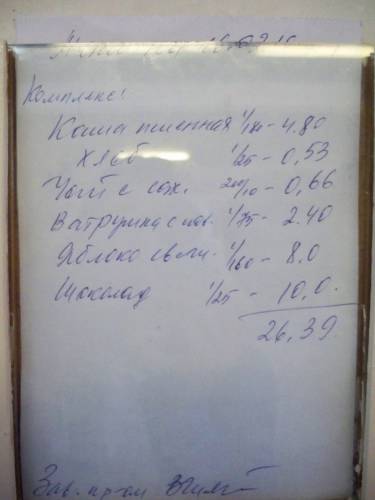 Комплекс:
Каша пшенная 1/180 - 4.80
Хлеб 1/25 - 0,53
Чай с сах. 200/10 - 0,66
Ватрушка с пов. 1/75 - 2.40
Яблоко свеж. 1/160 - 8.0
Шоколад 1/25 - 10,0.
26,39
Зав.